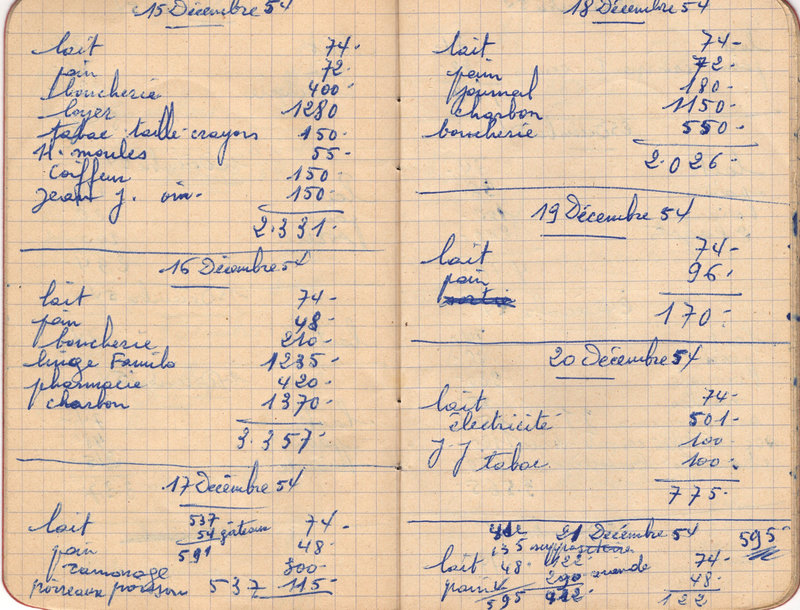 15 Décembre 54
lait 74-
pain 72-
boucherie 400-
loyer 1280
tabac taille-crayons 150-
H. moules 55-
Coiffeur 150-
Jean J. 150-
2.331-
16 Décembre 54
lait 74-
pain 48-
boucherie 210-
linge Familo 1235-
pharmacie 420-
charbon 1370-
3.357-
17 Décembre 54
lait 537 74-
54 gâteaux
pain 591 48-
ramonage 300-
poireaux poisson 537 115-
18 Décembre 54
lait 74-
pain 72-
journal 180-
charbon 1150-
boucherie 550-
2.026-
19 Décembre 54
lait 74-
pain 96-
170-
20 Décembre 54
lait 74-
électricité 501-
J. J 100-
tabac 100-
775-
21 Décembre 54 595
135 suppositoire
lait 48 122 74-
pain 290 viande 48-
595 412 122